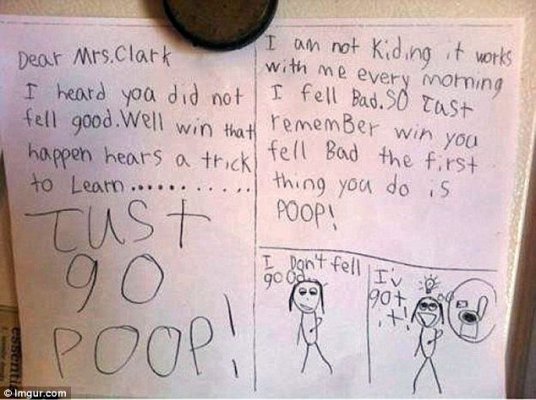 Dear Mrs.Clark
I heard you did not
fell good.Well win that
happen hears a trick
to Learn...........
Just
go
POOP!
I am not Kiding it works
with me every morning
I fell Bad.SO Just
remember win you
fell Bad the first
thing you do is
POOP!
I Don't fell
good.
I'v
got
it!
essenti
© Imgur.com